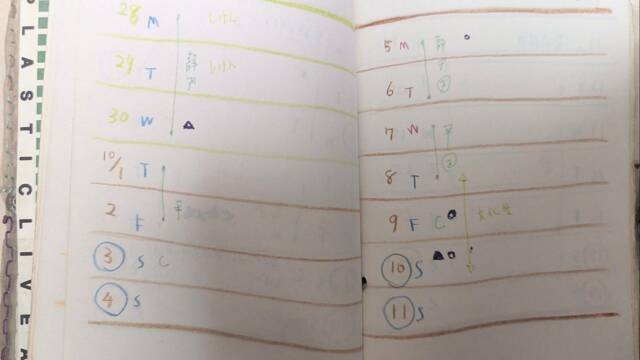 PLASTICLIVEA
28 M
29 T
30 W
10/1 T
2 F
3 S C
4 S
5 M
6 T
7 W
8 T
9 F C
10 S
11 S